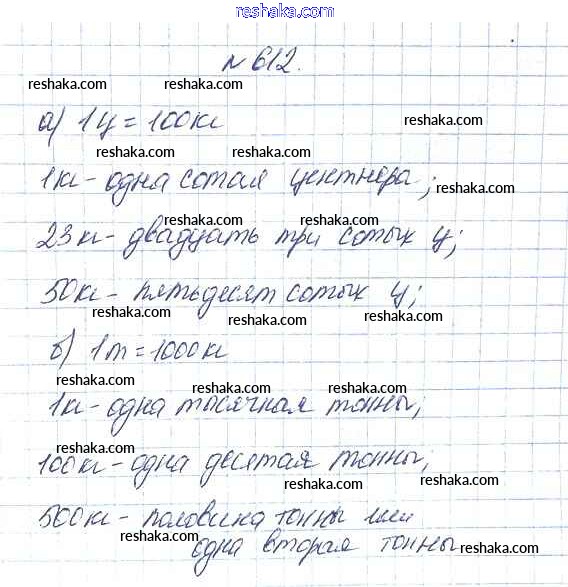 reshaka.com
№ 612.
reshaka.com reshaka.com
а) 1ц = 100кг reshaka.com
reshaka.com reshaka.com
1кг - одна сотая центнера;
reshaka.com
reshaka.com reshaka.com
23кг - двадцать три сотых ц;
reshaka.com reshaka.com
50кг - пятьдесят сотых ц;
reshaka.com reshaka.com
б) 1т = 1000кг
reshaka.com reshaka.com
1кг - одна тысячная тонны;
reshaka.com
reshaka.com
100кг - одна десятая тонны;
reshaka.com
500кг - половина тонны или
reshaka.com одна вторая тонны reshaka.com